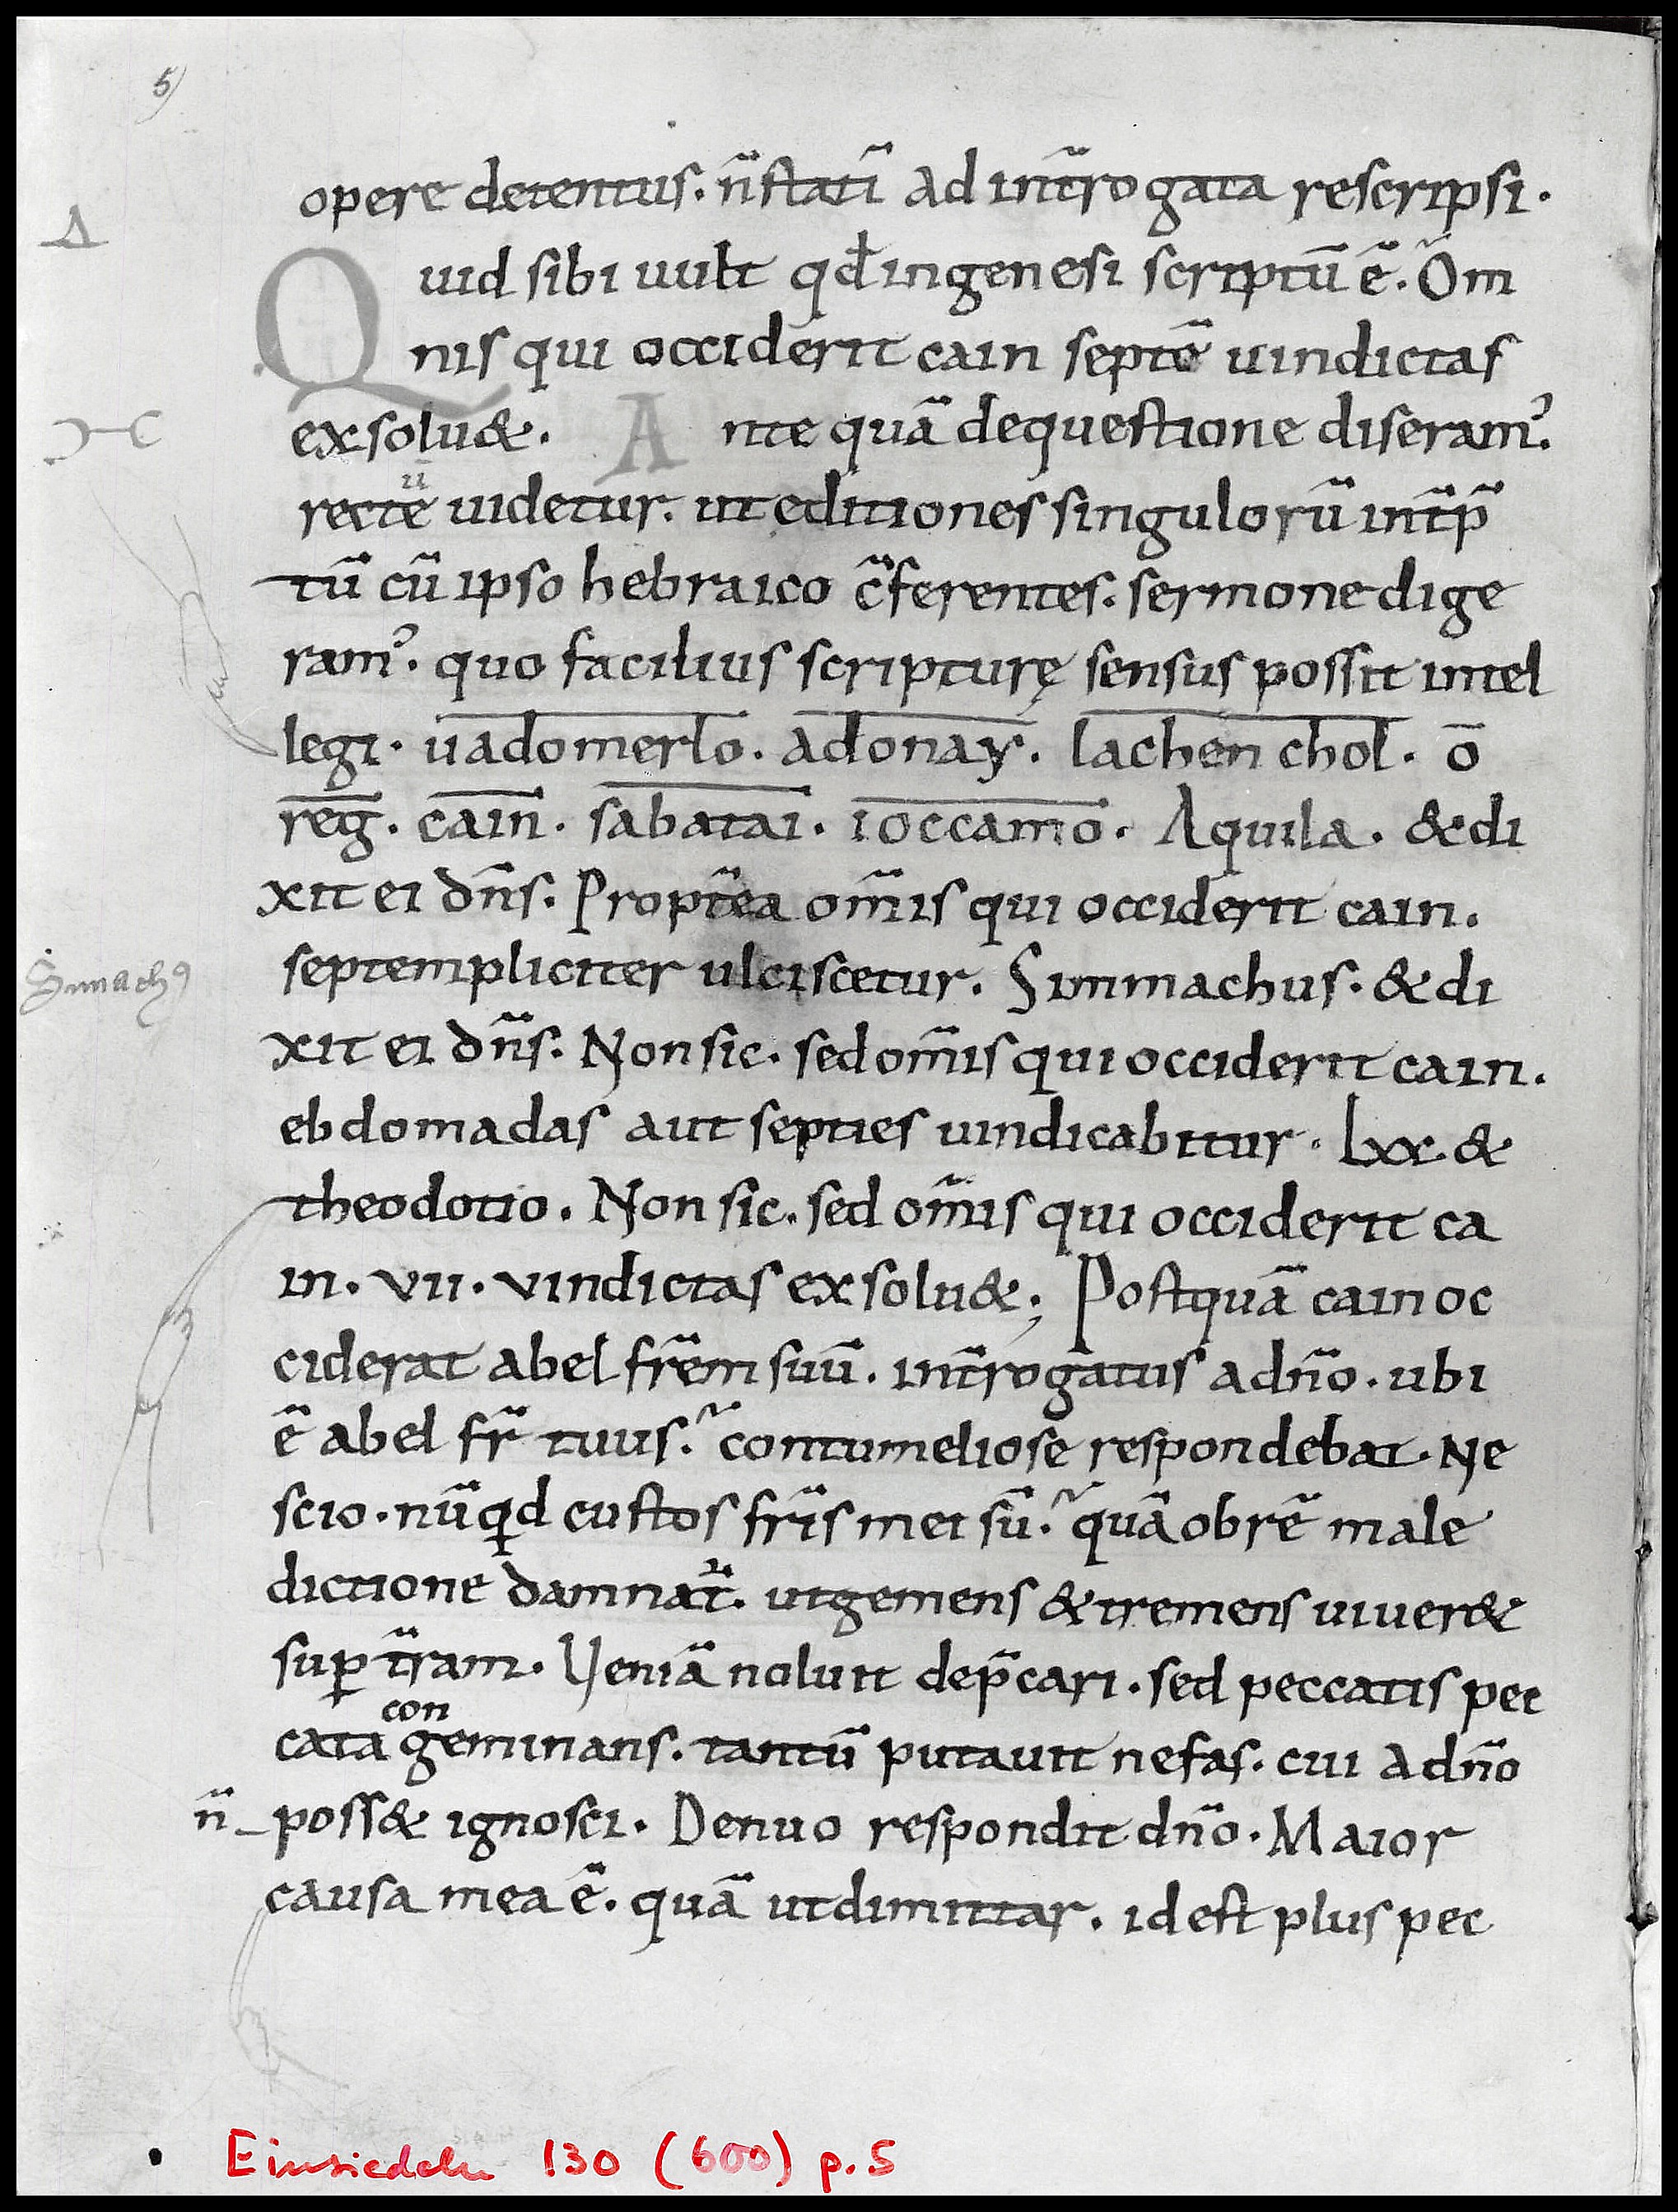 5)
opere detentus. n̄ statī ad int̄rogata rescripsi.
Quid sibi uult qđ in genesi scriptū ē. Om
nis qui occiderit cain septē uindictas
exsolu&. Ante quā de questione diseram᾽.
ū
recte uidetur. ut editiones singulorū int̄p̄
tū cū ipso hebraico c̄ferentes. sermone dige
ram᾽. quo facilius scripturę sensus possit intel
legi. uadomerlo. adonay. lachen chol. o
reg. cain. sabatai. ioccamo. Aquila. & di
xit ei dn̄s. Propt̄ea om̄is qui occiderit cain.
septempliciter ulciscetur. Simmachus. & di
Simach᾽
xit ei dn̄s. Non sic. sed om̄is qui occiderit cain.
ebdomadas aut septies uindicabitur. Lxx. &
theodotio. Non sic. sed om̄is qui occiderit ca
in. vii. vindictas exsolu&; Postquā cain oc
ciderat abel fr̄em suū. int̄rogatus a dn̄o. ubi
ē abel fr̄ tuus. contumeliose respondebat. Ne
scio. nūqd custos fr̄is mei sū. quā ob rē male
dictione damnat̄. ut gemens & tremens uiuer&
suꝑ t̄ram. Veniā noluit dep̄cari. sed peccatis pec
con
cata geminans. tantū putauit nefas. cui a dn̄o
n̄ poss& ignosci. Denuo respondit dn̄o. Maior
causa mea ē. quā ut dimittar. id est plus pec
Einsiedeln 130 (600) p. 5